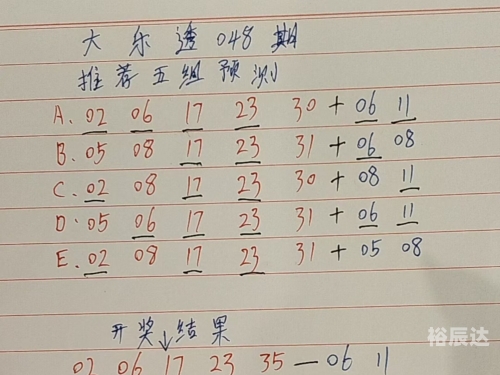 大乐透048期
推荐五组预测
A. 02 06 17 23 30 + 06 11
B. 05 08 17 23 31 + 06 08
C. 02 08 17 23 30 + 08 11
D. 05 06 17 23 31 + 06 11
E. 02 08 17 23 31 + 05 08
开奖↓结果
02 06 17 23 35 — 06 11
裕辰达